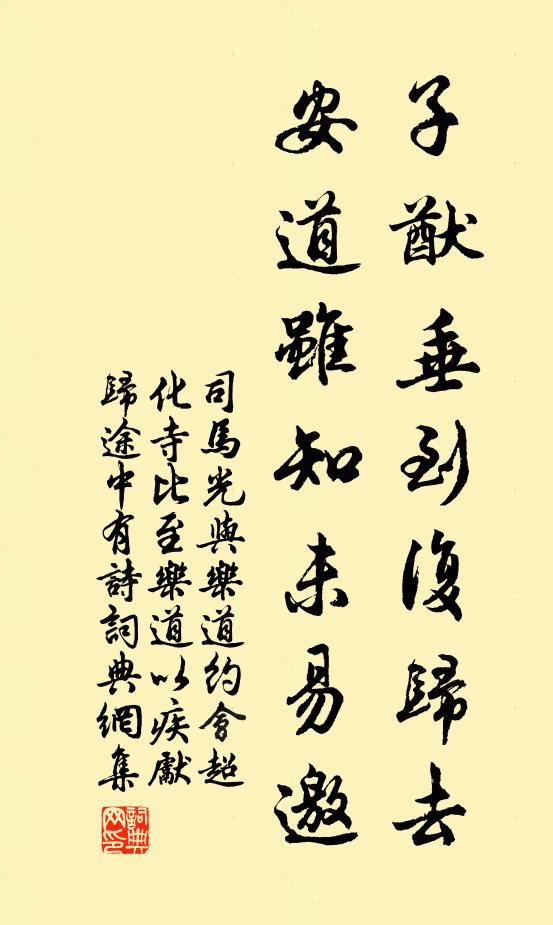 子猷垂到復歸去
安道雖知未易邀
司馬光與樂道約會超
化寺比至樂道以疾獻
歸途中有詩詞典網集
詞典網印